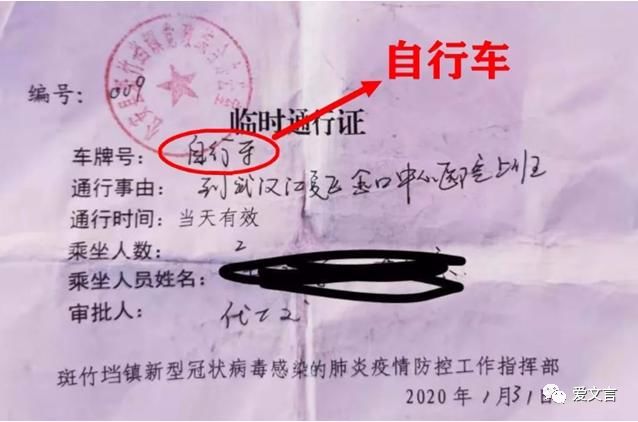 自行车
编号: 009
临时通行证
车牌号: 自行车
通行事由: 到武汉江夏区金口中心卫生院上班
通行时间: 当天有效
乘坐人数: 2
乘坐人员姓名:
审批人:
斑竹垱镇新型冠状病毒感染的肺炎疫情防控工作指挥部
2020年1月31日
爱文言